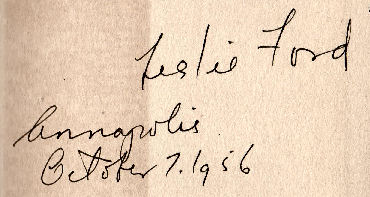 Leslie Ford
Annapolis
October 7.1956